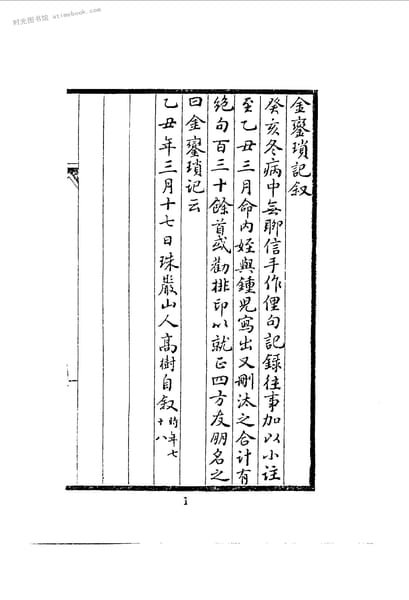 时光图书馆 - atimebook.com
金鑾瑣記叙
癸亥冬病中無聊信手作俚句記録往事加以小註
至乙丑三月命内姪與鍾児寫出又刪汰之合計有
絶句百三十餘首或勸排印以就正四方友朋名之
曰金鑾瑣記云
乙丑年三月十七日珠巖山人高樹自叙時年七十八
1